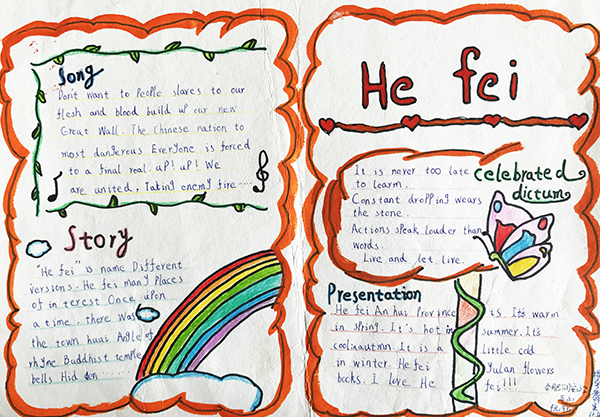 Song
Don't want to People slaves to our
flesh and blood build up our new
Great Wall. The Chinese nation to
most dangerous Everyone is forced
to a final real. up! up! We
are united, Taking enemy fire....
Story
"He fei" is name Different
versions. He fei many Places
of in terest Once upon
a time, there was
the town huai Angle of
rhyne Buddhist temple
bells Hid den ......
He fei
celebrated
dictum
It is never too late
to learm.
Constant dropping wears
the stone.
Actions speak louder than
words.
Live and let live.
Presentation
He fei An hui Province is. It's warm
in spring. It's hot in summer. It's
cool inautmn. It is a little cold
in winter. He fei Yulan flowers
books. I love He fei!!!